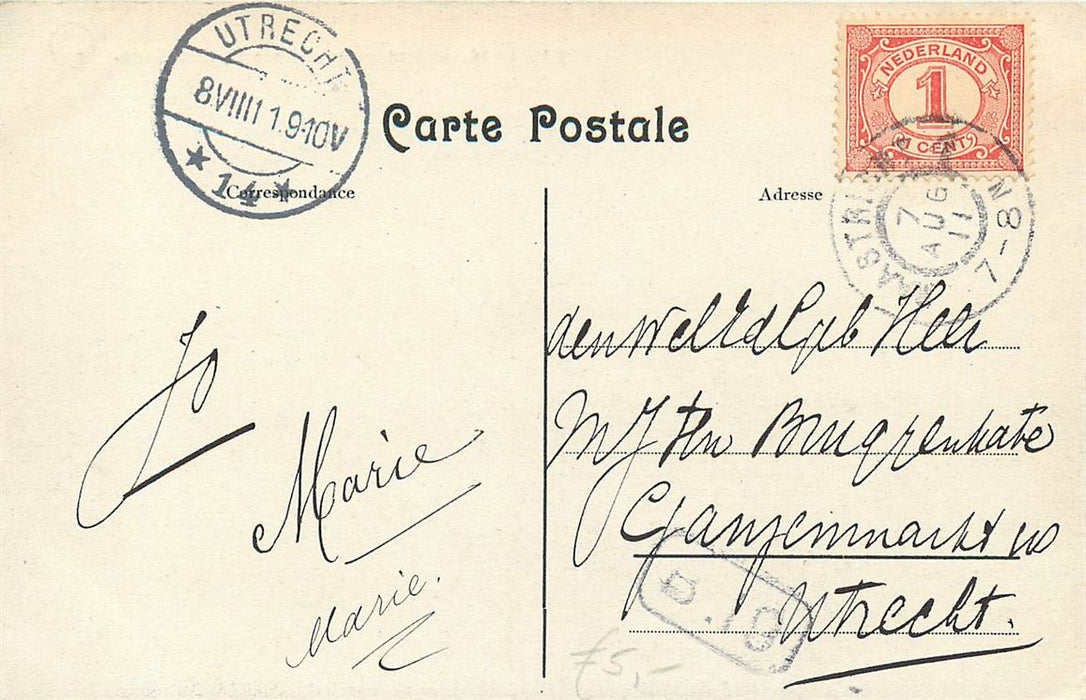 UTRECHT
8 VIII 11 1. 9-10V
14
Carte Postale
NEDERLAND
1
1 CENT
MAASTRICHT
7 AUG 11
7-8 N
Correspondance
Adresse
Jo
Marie
Marie.
den WelEdlGeb Heer
MJ ten Bruggenkate
Ganzenmarkt
Utrecht.
£5,-